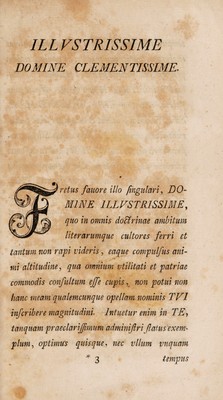 ILLVSTRISSIME
DOMINE CLEMENTISSIME.
Fretus fauore illo ſingulari, DO-
MINE ILLVSTRISSIME,
quo in omnis doctrinae ambitum
literarumque cultores ferri et
tantum non rapi videris, eaque compulſus ani-
mi altitudine, qua omnium vtilitati et patriae
commodis conſultum eſſe cupis, non potui non
hanc meam qualemcunque opellam nominis TVI
inſcribere magnitudini. Intuetur enim in TE,
tanquam praeclariſſimum adminiſtri ſtatus exem-
plum, optimus quisque, nec vllum vnquam
* 3
tempus